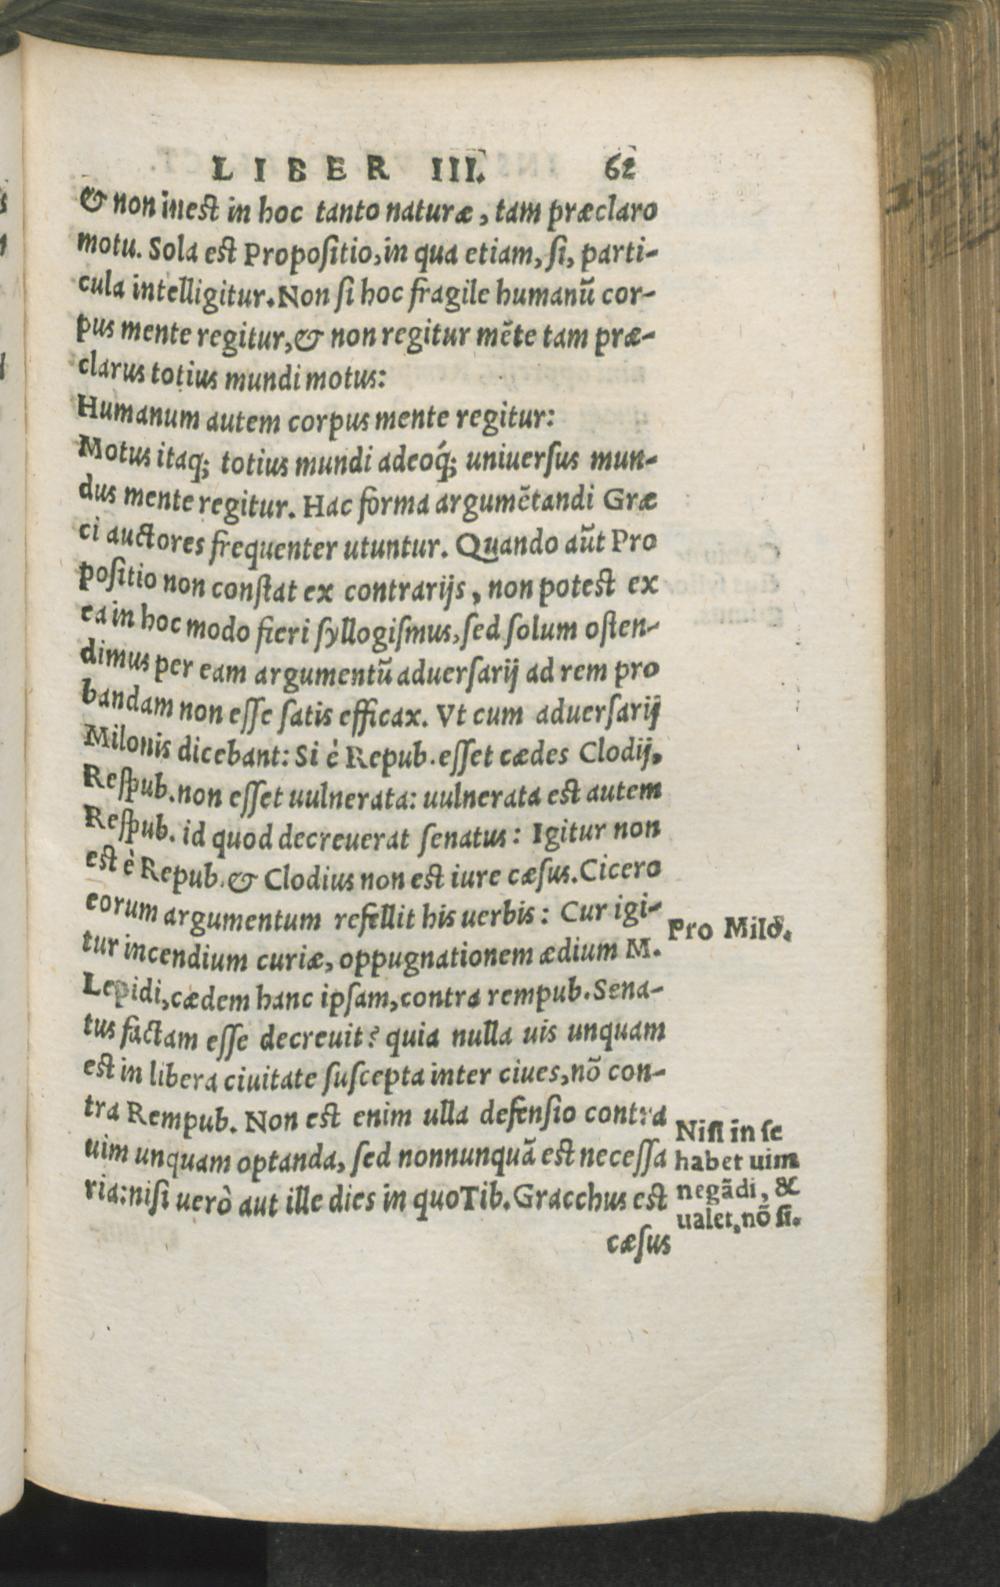 LIBER III. 62
& non inest in hoc tanto naturæ, tam præclaro
motu. Sola est Propositio, in qua etiam, si, parti-
cula intelligitur. Non si hoc fragile humanū cor-
pus mente regitur, & non regitur mēte tam præ-
clarus totius mundi motus:
Humanum autem corpus mente regitur:
Motus itaq; totius mundi adeóq; uniuersus mun-
dus mente regitur. Hac forma argumētandi Græ
ci auctores frequenter utuntur. Quando aūt Pro
positio non constat ex contrarijs, non potest ex
ea in hoc modo fieri syllogismus, sed solum osten-
dimus per eam argumentū aduersarij ad rem pro
bandam non esse satis efficax. Vt cum aduersarij
Milonis dicebant: Si è Repub. esset cædes Clodij,
Respub. non esset uulnerata: uulnerata est autem
Respub. id quod decreuerat senatus: Igitur non
est è Repub. & Clodius non est iure cæsus. Cicero
eorum argumentum refellit his uerbis: Cur igi-
tur incendium curiæ, oppugnationem ædium M.
Lepidi, cædem hanc ipsam, contra rempub. Sena-
tus factam esse decreuit? quia nulla uis unquam
est in libera ciuitate suscepta inter ciues, nō con-
tra Rempub. Non est enim ulla defensio contra
uim unquam optanda, sed nonnunquā est necessa
ria: nisi uerò aut ille dies in quo Tib. Gracchus est
cæsus
Pro Milo.
Nisi in se
habet uim
negādi, &
ualet, nō si.